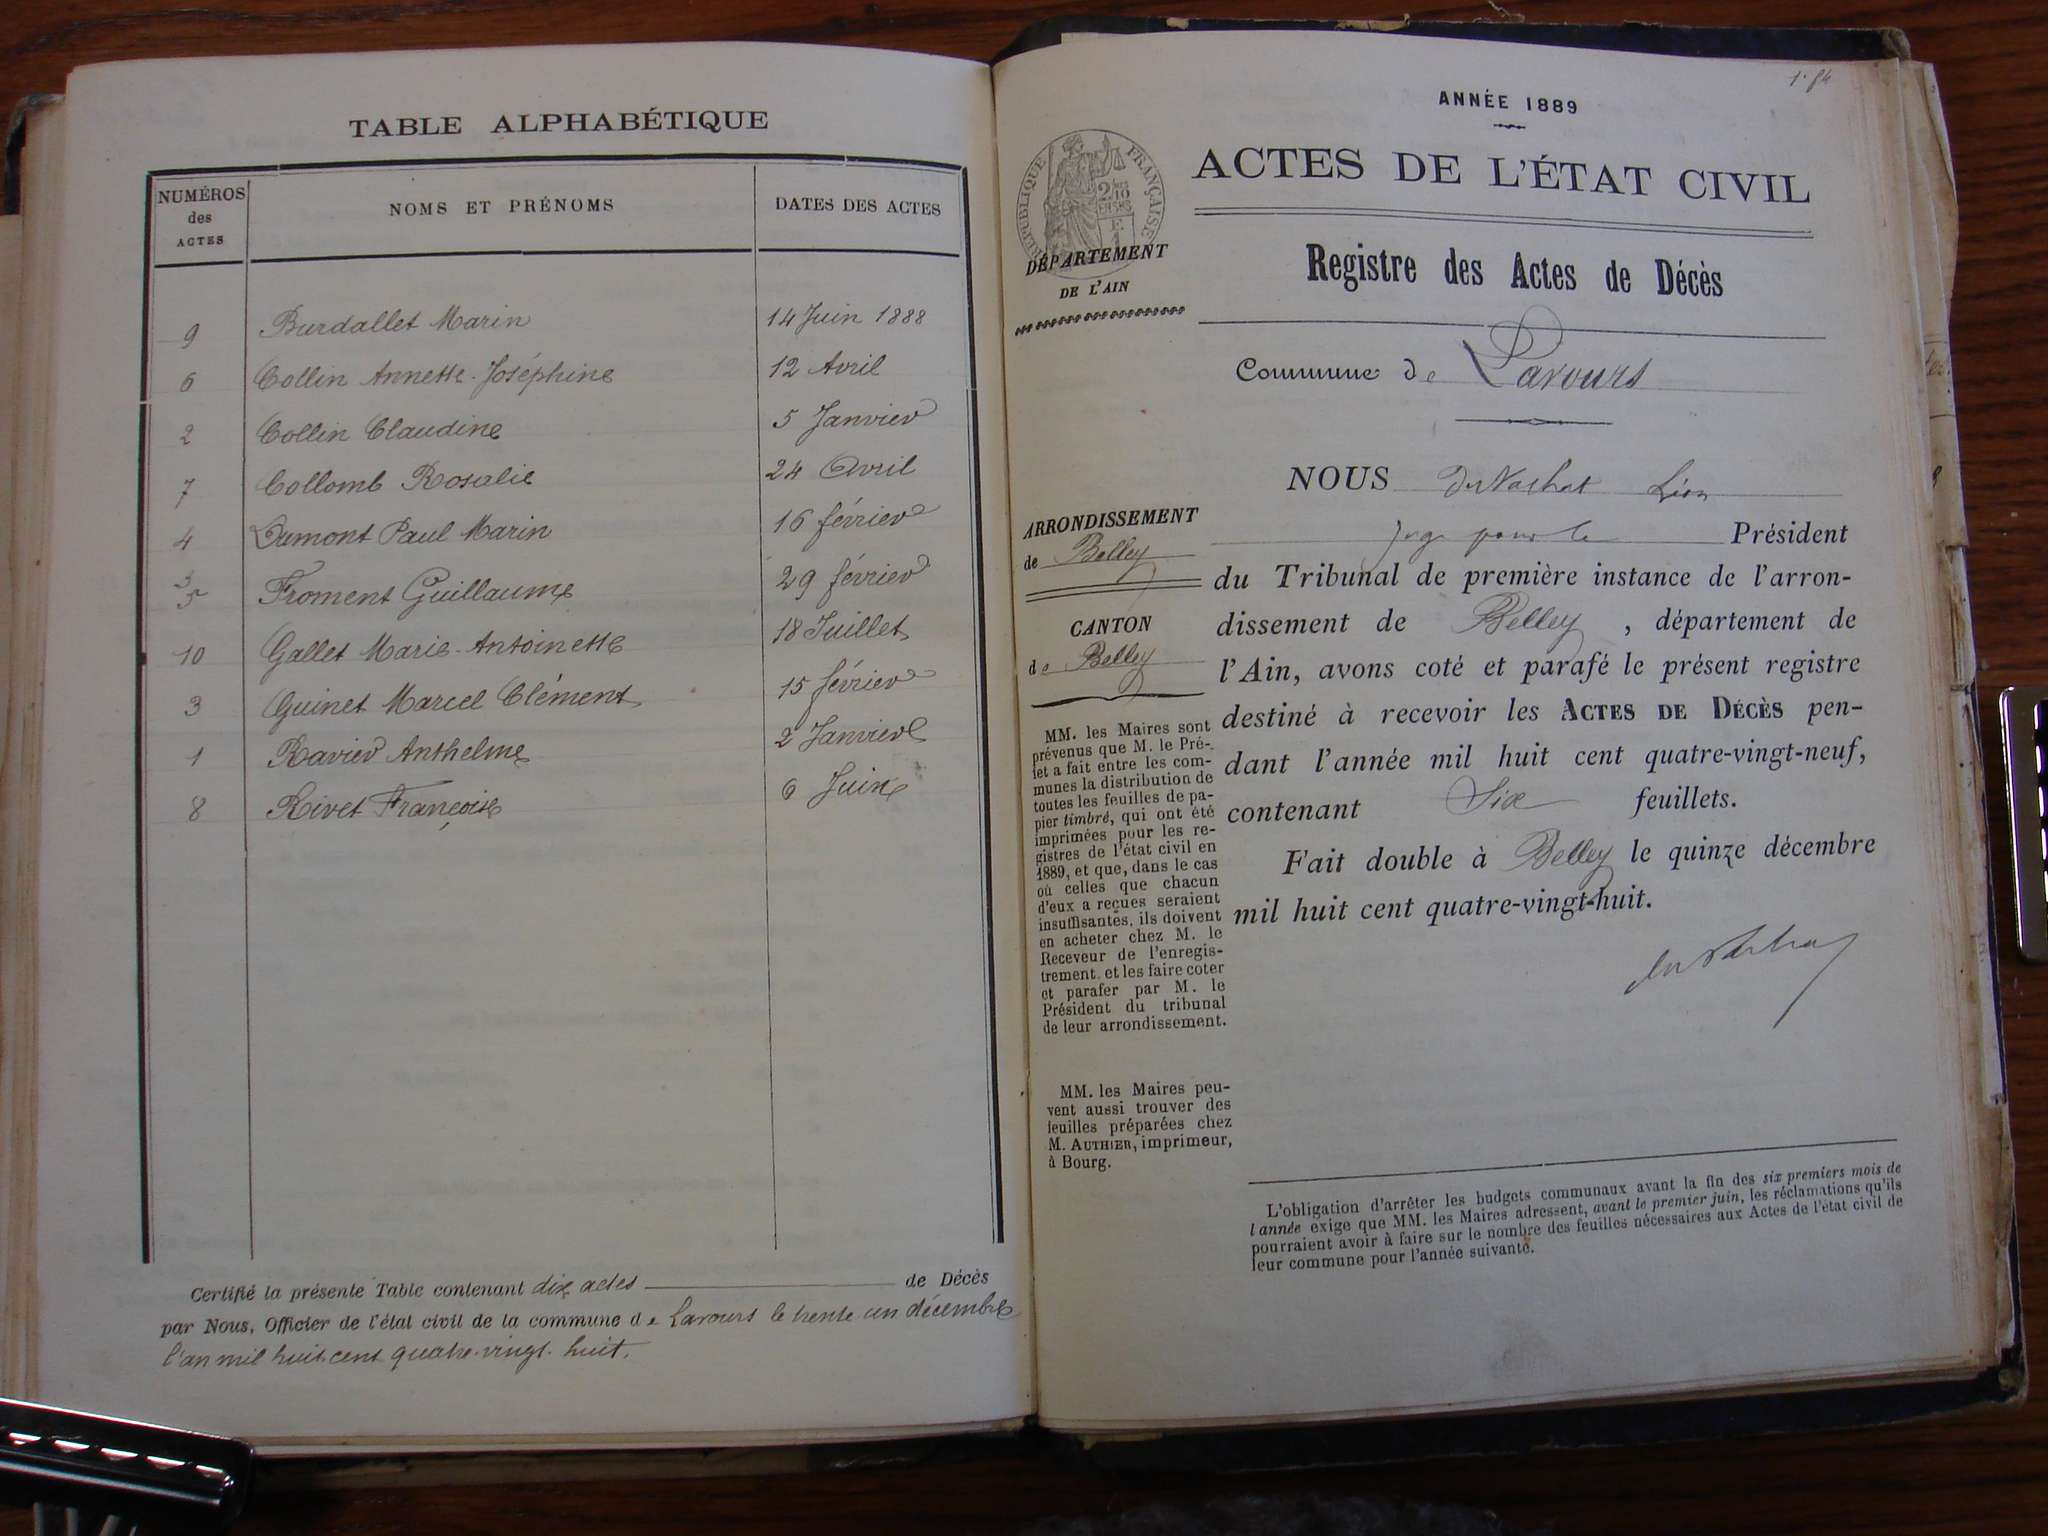 TABLE ALPHABÉTIQUE
NUMÉROS des ACTES NOMS ET PRÉNOMS DATES DES ACTES
9 Burdallet Marin 14 Juin 1888
6 Collin Annette-Joséphine 12 Avril
2 Collin Claudine 5 Janvier
7 Collomb Rosalie 24 Avril
4 Dumont Paul Marin 16 février
5 Froment Guillaume 29 février
10 Gallet Marie-Antoinette 18 Juillet
3 Guinet Marcel Clément 15 février
1 Ravier Anthelme 2 Janvier
8 Rivet Françoise 6 Juin
Certifié la présente Table contenant dix actes de Décès
par Nous, Officier de l'état civil de la commune de Lavours le trente un décembre
l'an mil huit cent quatre-vingt-huit.
ANNÉE 1889
RÉPUBLIQUE FRANÇAISE
ACTES DE L'ÉTAT CIVIL
DÉPARTEMENT
DE L'AIN
Registre des Actes de Décès
Commune de Lavours
ARRONDISSEMENT
de Belley
CANTON
de Belley
MM. les Maires sont
prévenus que M. le Pré-
fet a fait entre les com-
munes la distribution de
toutes les feuilles de pa-
pier timbré, qui ont été
imprimées pour les re-
gistres de l'état civil en
1889, et que, dans le cas
où celles que chacun
d'eux a reçues seraient
insuffisantes, ils doivent
en acheter chez M. le
Receveur de l'enregis-
trement, et les faire coter
et parafer par M. le
Président du tribunal
de leur arrondissement.
MM. les Maires peu-
vent aussi trouver des
feuilles préparées chez
M. AUTHIER, imprimeur,
à Bourg.
NOUS Léon
Juge pour le Président
du Tribunal de première instance de l'arron-
dissement de Belley, département de
l'Ain, avons coté et parafé le présent registre
destiné à recevoir les ACTES DE DÉCÈS pen-
dant l'année mil huit cent quatre-vingt-neuf,
contenant Six feuillets.
Fait double à Belley le quinze décembre
mil huit cent quatre-vingt-huit.
L'obligation d'arrêter les budgets communaux avant la fin des six premiers mois de
l'année exige que MM. les Maires adressent, avant le premier juin, les réclamations qu'ils
pourraient avoir à faire sur le nombre des feuilles nécessaires aux Actes de l'état civil de
leur commune pour l'année suivante.